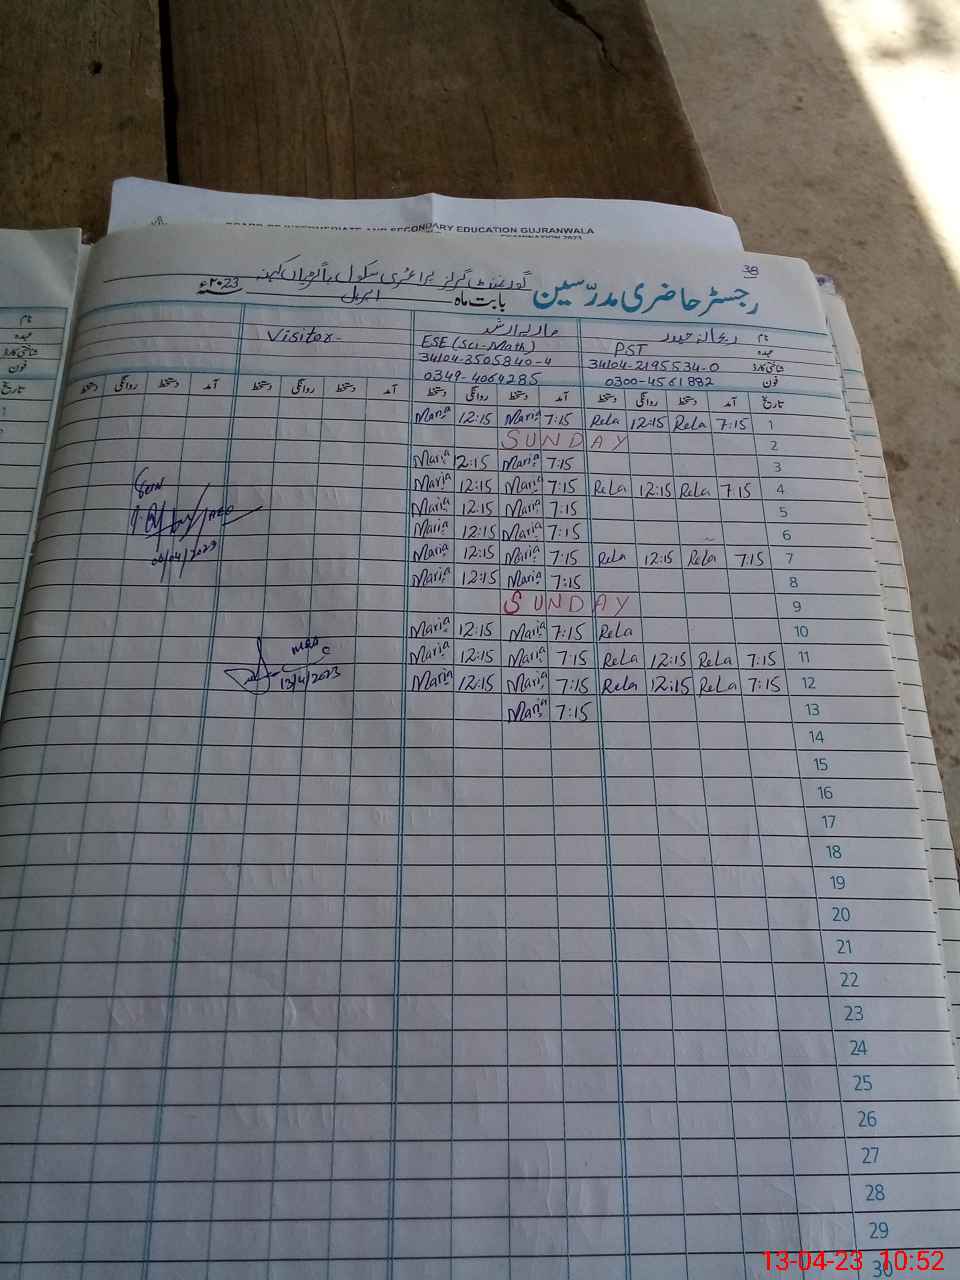 BOARD OF INTERMEDIATE AND SECONDARY EDUCATION GUJRANWALA
EXAMINATION 2023
38
گورنمنٹ گرلز پرائمری سکول باگڑیاں کہنہ
رجسٹر حاضری مدرّسین بابت ماہ اپریل ۲۰23ء
نام ماریہ ارشد Visitor-
عہدہ PST ESE (Sci-Math)
شناختی کارڈ 34104-2195534-0 34104-3505840-4
فون 0300-4561882 0349-4064285
تاریخ آمد دستخط روانگی دستخط آمد دستخط روانگی دستخط آمد دستخط روانگی دستخط آمد دستخط روانگی دستخط
Maria 12:15 Maria 7:15 Rela 12:15 Rela 7:15 1
SUNDAY 2
Maria 12:15 Maria 7:15 3
Maria 12:15 Maria 7:15 Rela 12:15 Rela 7:15 4
Maria 12:15 Maria 7:15 5
Maria 12:15 Maria 7:15 6
Maria 12:15 Maria 7:15 Rela 12:15 Rela 7:15 7
Maria 12:15 Maria 7:15 8
SUNDAY 9
Maria 12:15 Maria 7:15 Rela 10
Maria 12:15 Maria 7:15 Rela 12:15 Rela 7:15 11
Maria 12:15 Maria 7:15 Rela 12:15 Rela 7:15 12
Maria 7:15 13
Seen
AEO
13/4/2023
14
15
16
17
18
19
20
21
22
23
24
25
26
27
28
29
30
نام
عہدہ
شناختی کارڈ
فون
تاریخ
13-04-23 10:52